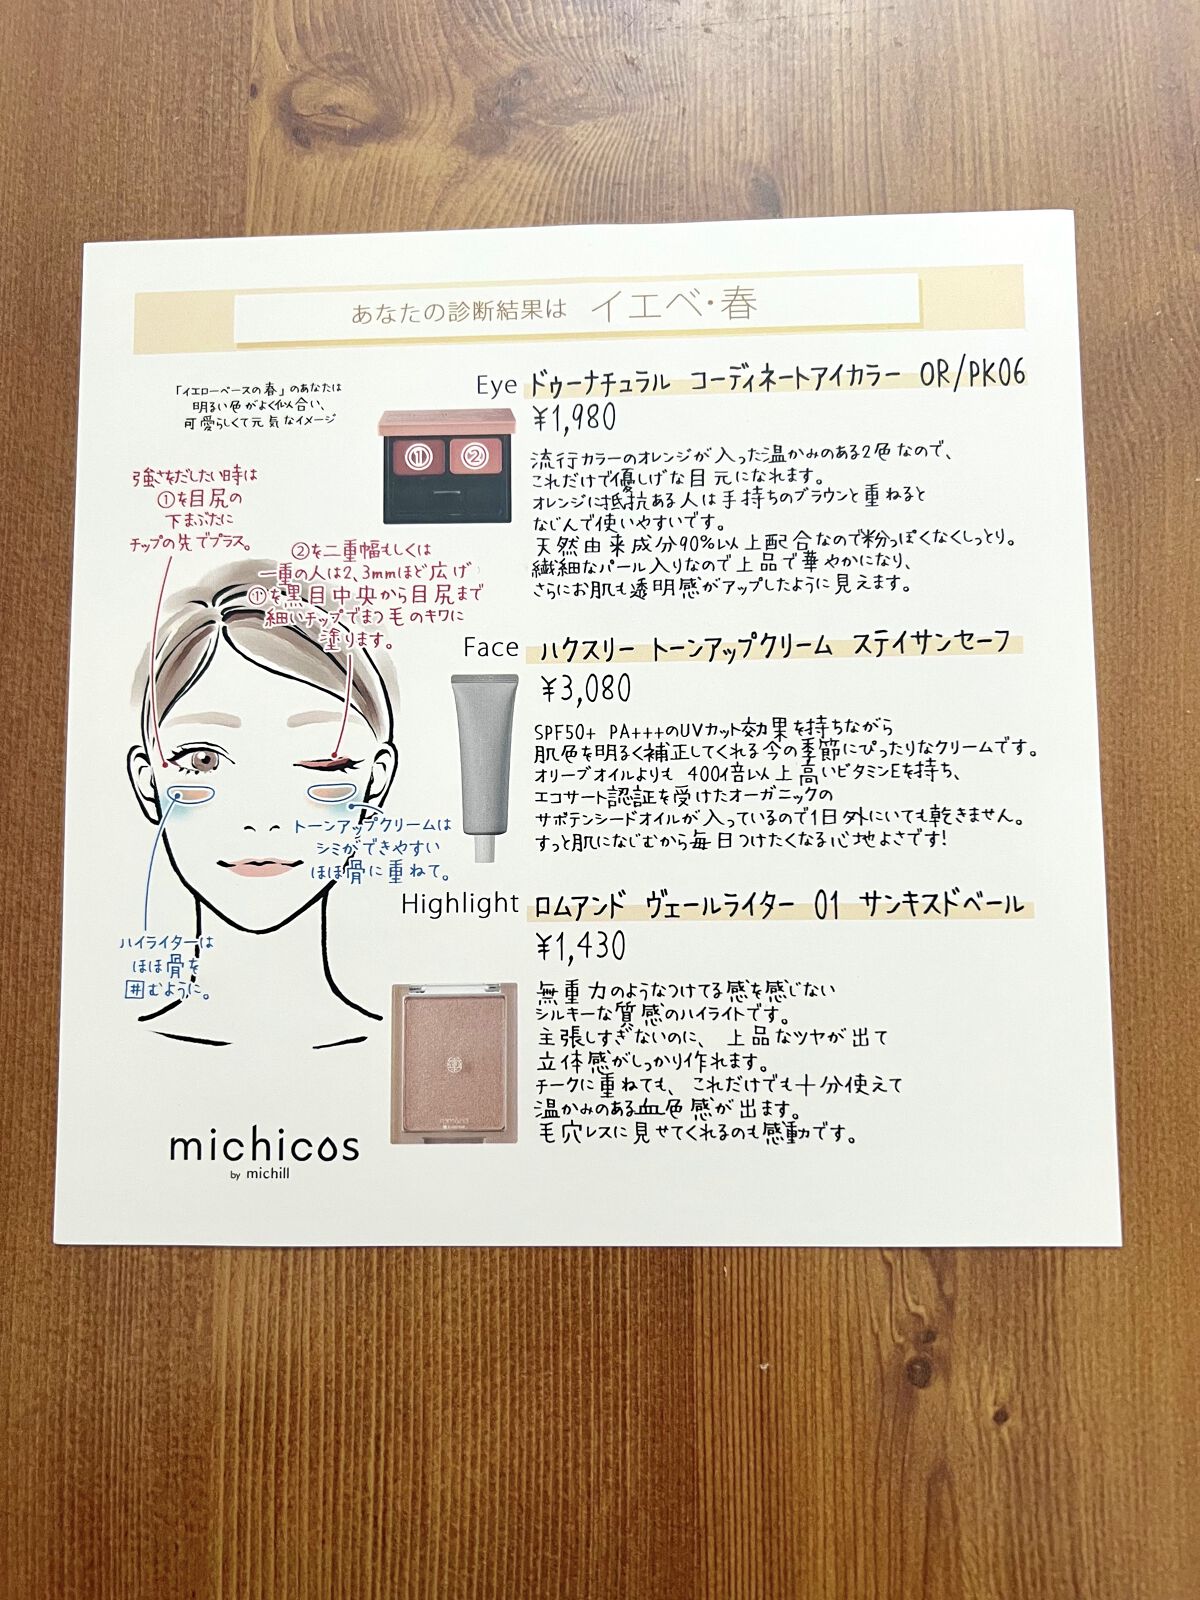 あなたの診断結果は イエベ・春
「イエローベースの春」のあなたは
明るい色がよく似合い、
可愛らしくて元気なイメージ
強さをだしたい時は
①を目尻の
下まぶたに
チップの先でプラス。
②を二重幅もしくは
一重の人は2,3mmほど広げ
①を黒目中央から目尻まで
細いチップでまつ毛のキワに
塗ります。
トーンアップクリームは
シミができやすい
ほほ骨に重ねて。
ハイライターは
ほほ骨を
囲むように。
Eye ドゥーナチュラル コーディネートアイカラー OR/PK06
¥1,980
① ②
流行カラーのオレンジが入った温かみのある2色なので、
これだけで優しげな目元になれます。
オレンジに抵抗ある人は手持ちのブラウンと重ねると
なじんで使いやすいです。
天然由来成分90%以上配合なので粉っぽくなくしっとり。
繊細なパール入りなので上品で華やかになり、
さらにお肌も透明感がアップしたように見えます。
Face ハクスリー トーンアップクリーム ステイサンセーフ
¥3,080
SPF50+ PA+++のUVカット効果を持ちながら
肌色を明るく補正してくれる今の季節にぴったりなクリームです。
オリーブオイルよりも 400倍以上高いビタミンEを持ち、
エコサート認証を受けたオーガニックの
サボテンシードオイルが入っているので1日外にいても乾きません。
すっと肌になじむから毎日つけたくなる心地よさです!
Highlight ロムアンド ヴェールライター 01 サンキスドベール
¥1,430
無重力のようなつけてる感を感じない
シルキーな質感のハイライトです。
主張しすぎないのに、上品なツヤが出て
立体感がしっかり作れます。
チークに重ねても、これだけでも十分使えて
温かみのある血色感が出ます。
毛穴レスに見せてくれるのも感動です。
michicos
by michill